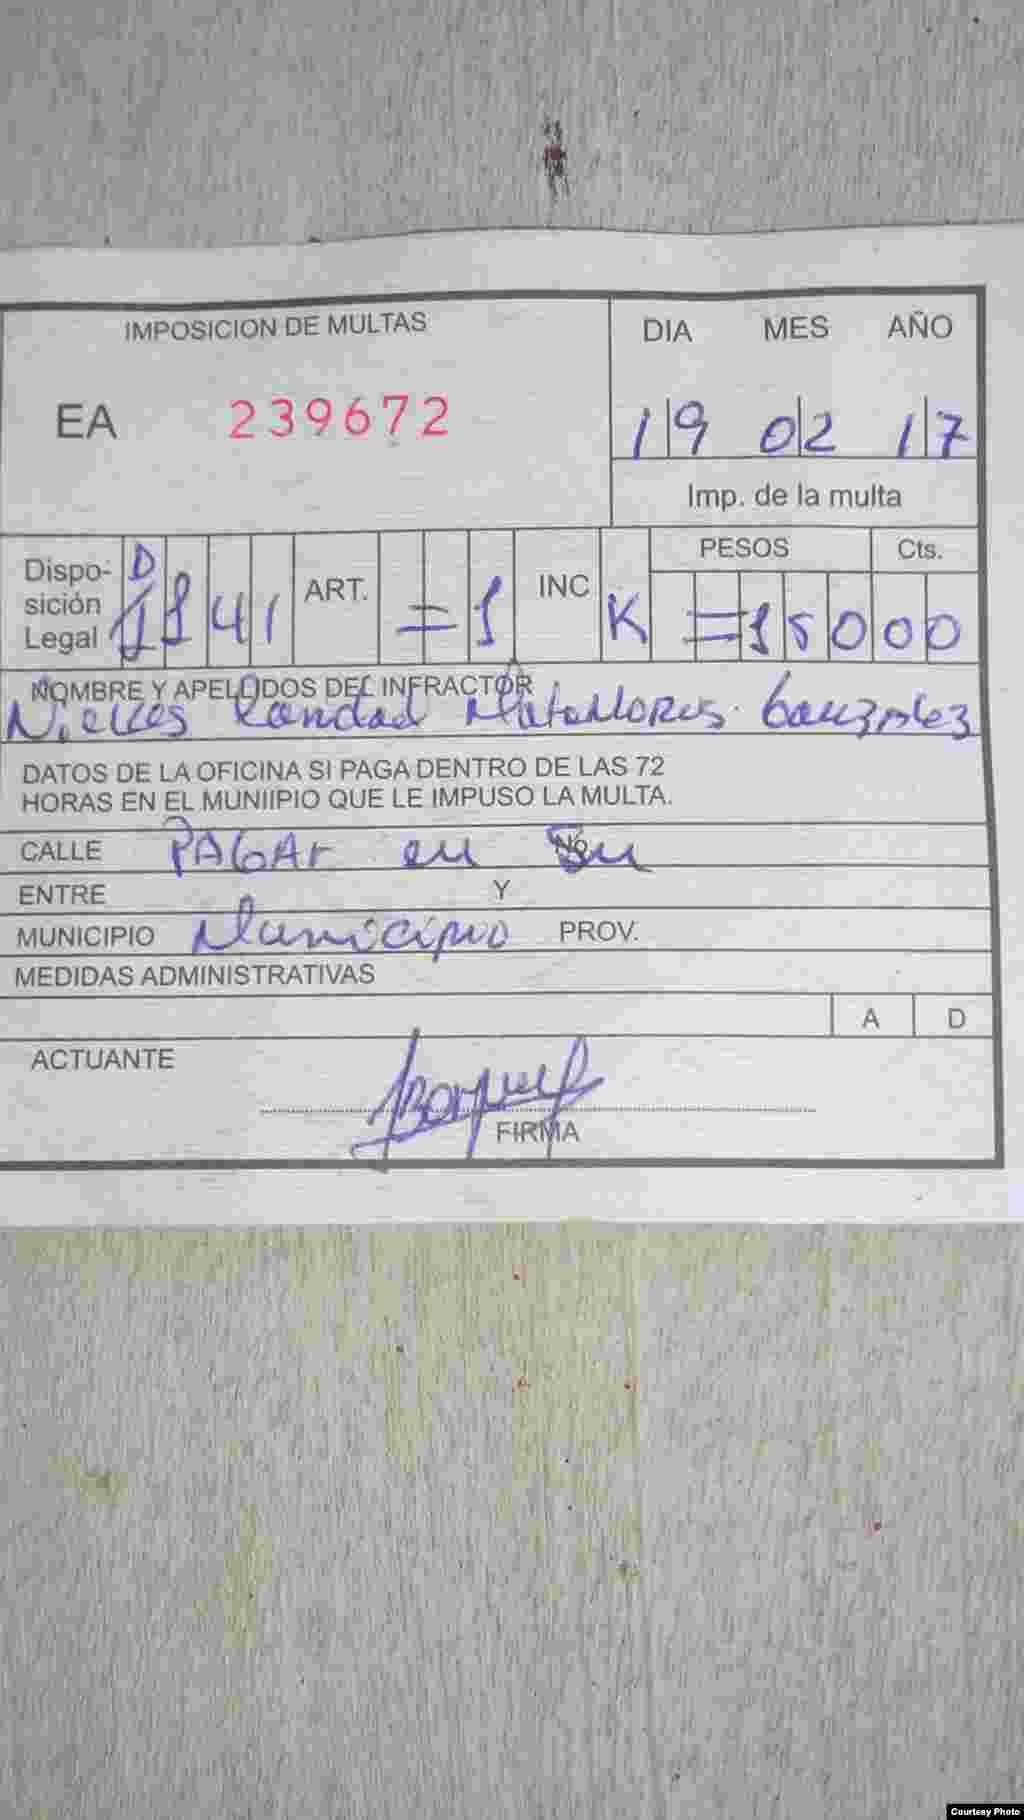 IMPOSICION DE MULTAS
DIA MES AÑO
EA 239672
19 02 17
Imp. de la multa
Dispo-
sición
Legal
D
141 ART. = 1 INC K PESOS Cts.
= 150 00
NOMBRE Y APELLIDOS DEL INFRACTOR
Nieves Caridad Matamoros González
DATOS DE LA OFICINA SI PAGA DENTRO DE LAS 72
HORAS EN EL MUNIIPIO QUE LE IMPUSO LA MULTA.
CALLE PAGAr en No. Su
ENTRE Y
MUNICIPIO Municipio PROV.
MEDIDAS ADMINISTRATIVAS
A D
ACTUANTE
FIRMA
Courtesy Photo